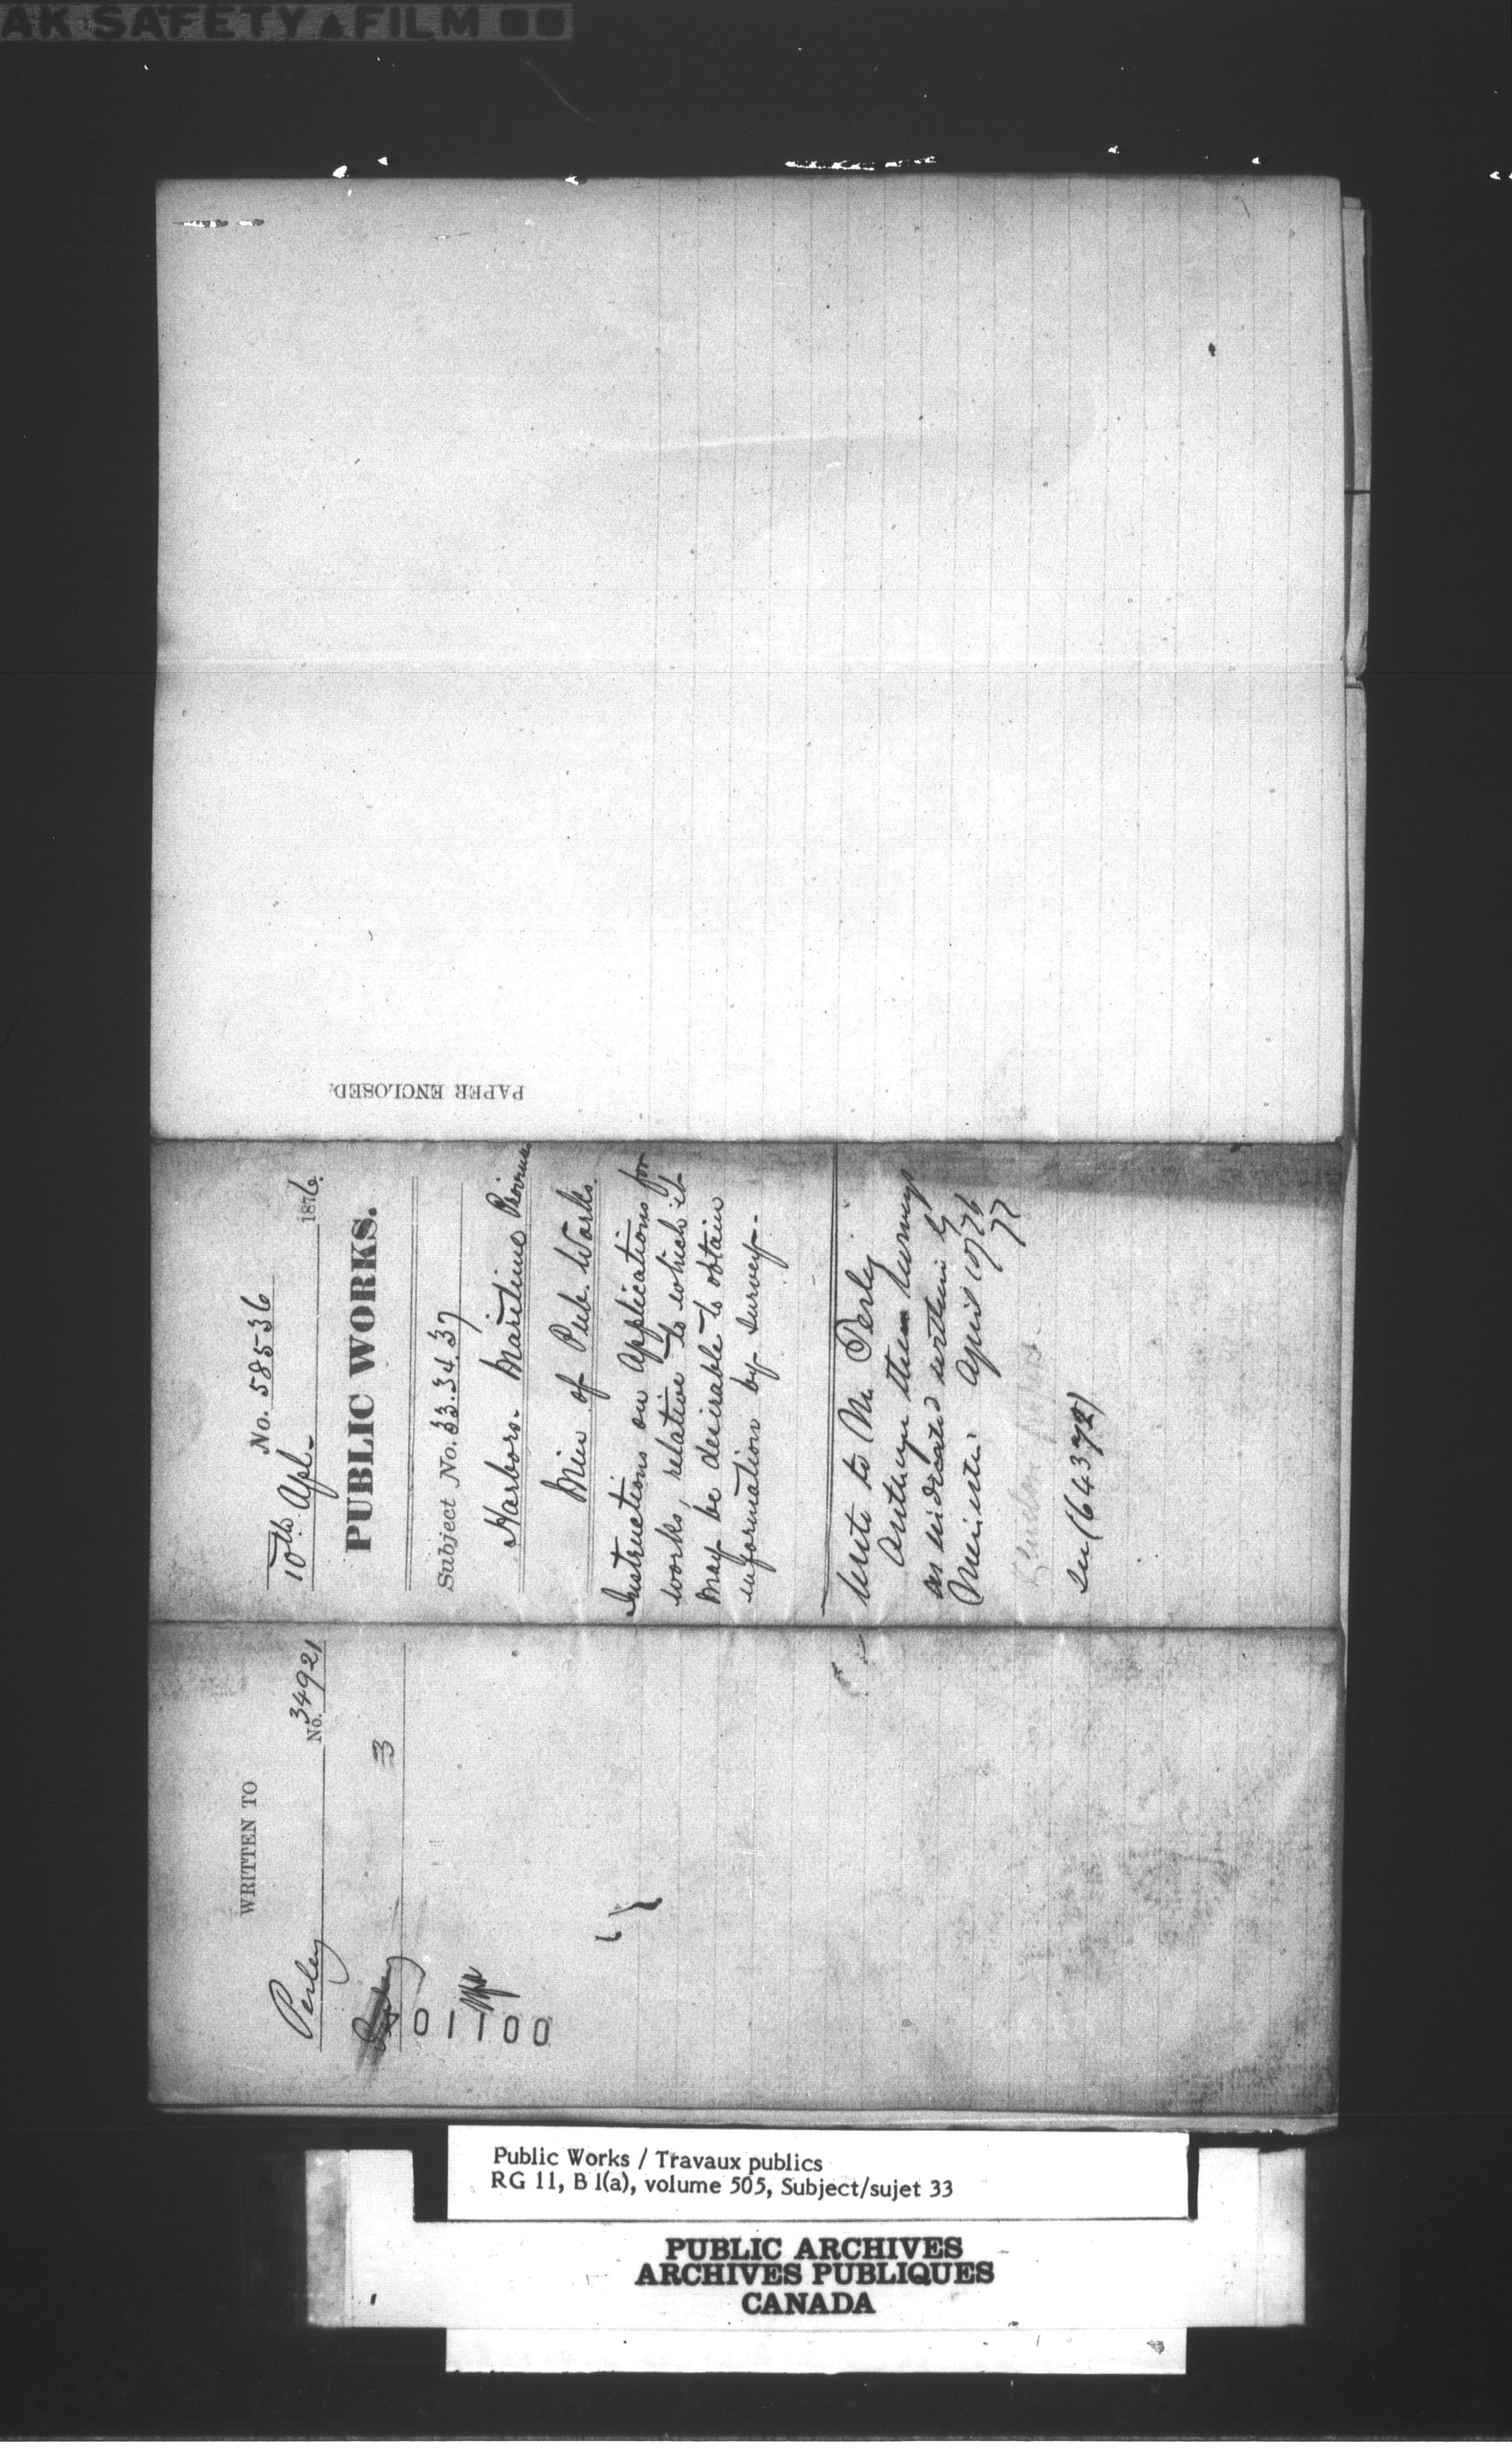 AK SAFETY ▲ FILM
PAPER ENCLOSED.
No. 58536
10th Apl. 1876.
PUBLIC WORKS.
Subject No. 33.34.37
Harbors. Maritime Provinces
Min of Pub. Works.
Instructions on applications for
works, relative to which it
may be desirable to obtain
information by survey..
Write to Mr Perley
these surveys
as indicated within by
Minister April 10/76
77
See (64372)
WRITTEN TO
Perley No. 34921
3
01100
Public Works / Travaux publics
RG 11, B 1(a), volume 505, Subject/sujet 33
PUBLIC ARCHIVES
ARCHIVES PUBLIQUES
CANADA